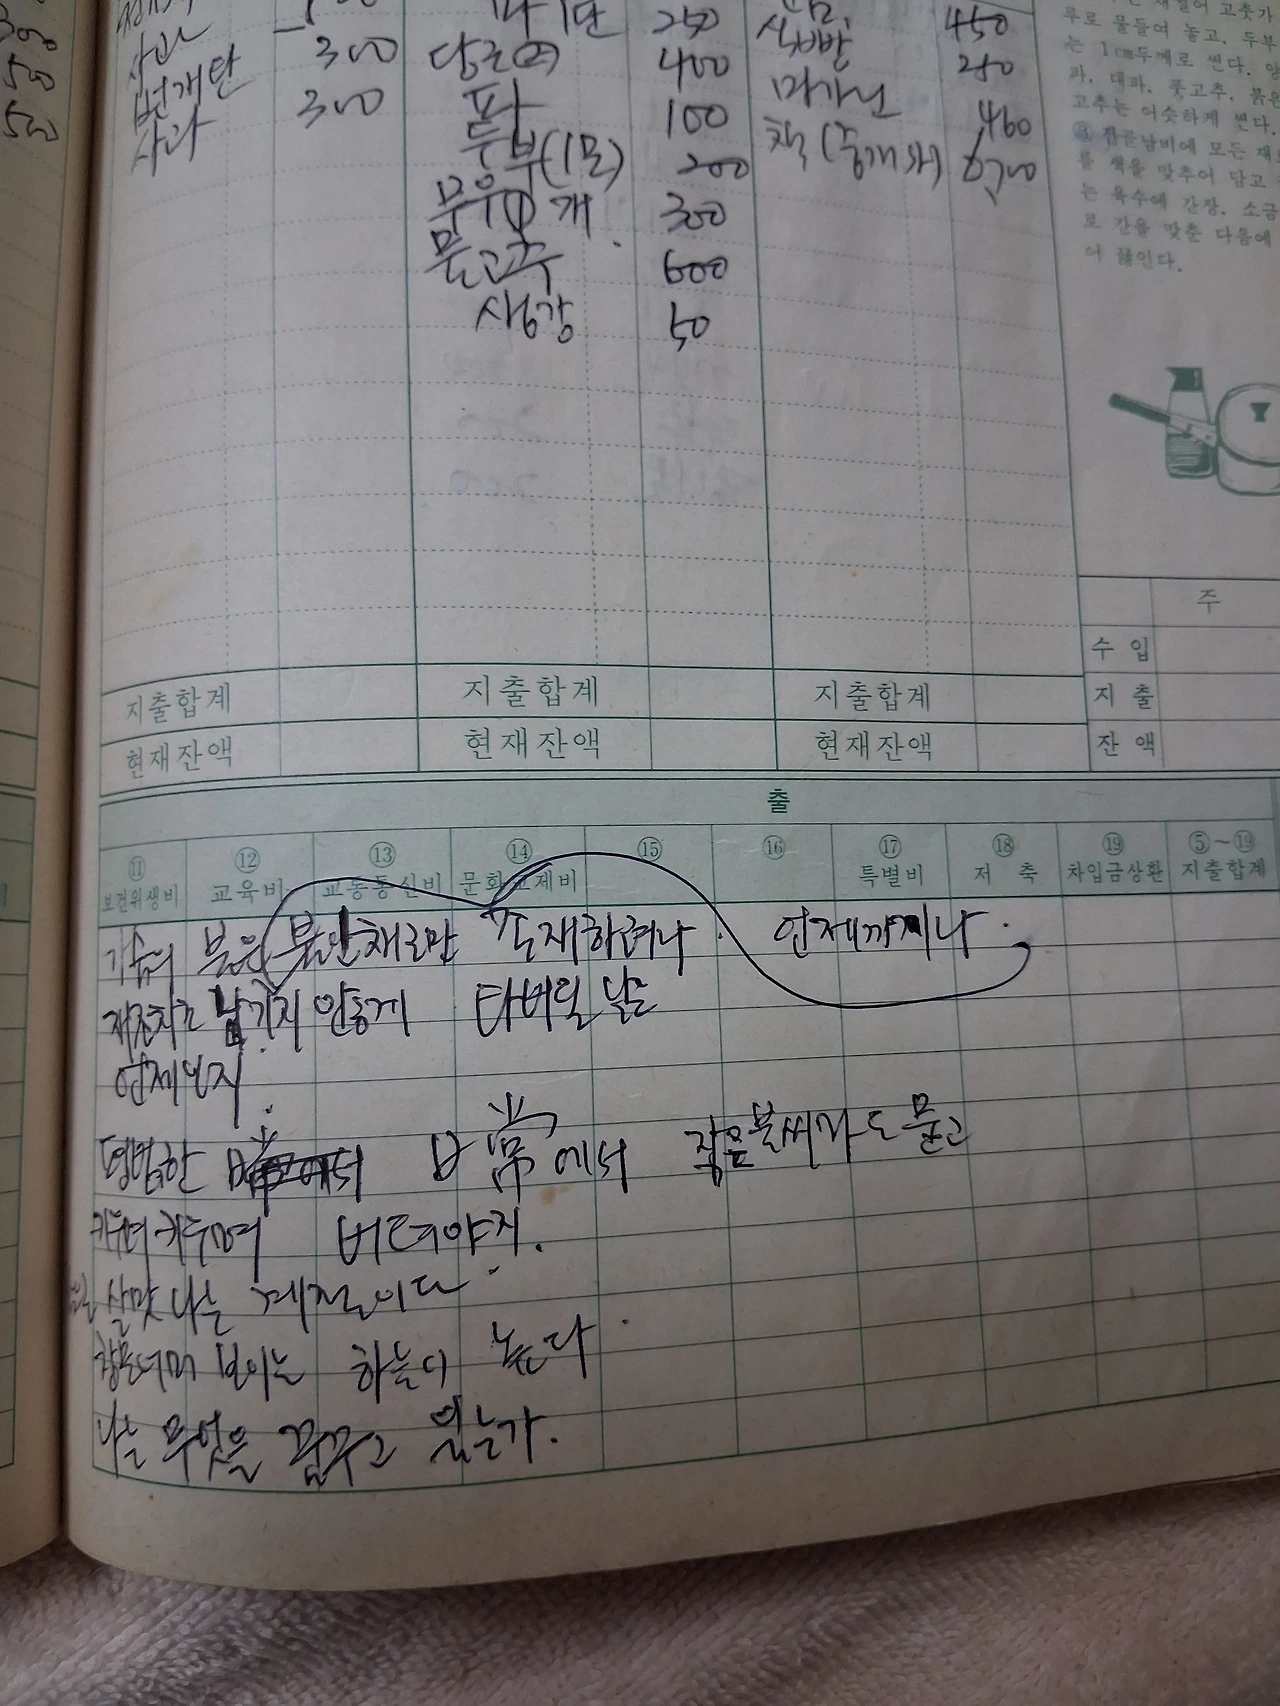 사과
번개탄 300
사과 300
파 1단 250
당근(2) 400
파 100
두부(1모) 200
무우 1개 300
물고추 600
생강 50
450
신발 250
마가린 460
책(중개와) 6,700
고춧가
루로 물들여 놓고, 두부
는 1cm두께로 썬다. 양
파, 대파, 풋고추, 붉은
고추는 어슷하게 썬다.
③ 전골남비에 모든 재료
를 색을 맞추어 담고
는 육수에 간장, 소금
로 간을 맞춘 다음에
어 끓인다.
주
수 입
지 출
잔 액
지출합계 지출합계 지출합계
현재잔액 현재잔액 현재잔액
출
⑪ ⑫ ⑬ ⑭ ⑮ ⑯ ⑰ ⑱ ⑲ ⑤~⑲
보건위생비 교육비 교통통신비 문화교제비 특별비 저 축 차입금상환 지출합계
가슴의 불은 불안채로만 존재하려나. 언제까지나.
재조차도 남기지 않게 타버릴 날은
언제인지.
평범한 에서 작은불씨라도 묻고
키우며 키우며 버텨야지.
살맛나는 계절이다.
창문너머 보이는 하늘이 높다.
나는 무엇을 꿈꾸고 있는가.